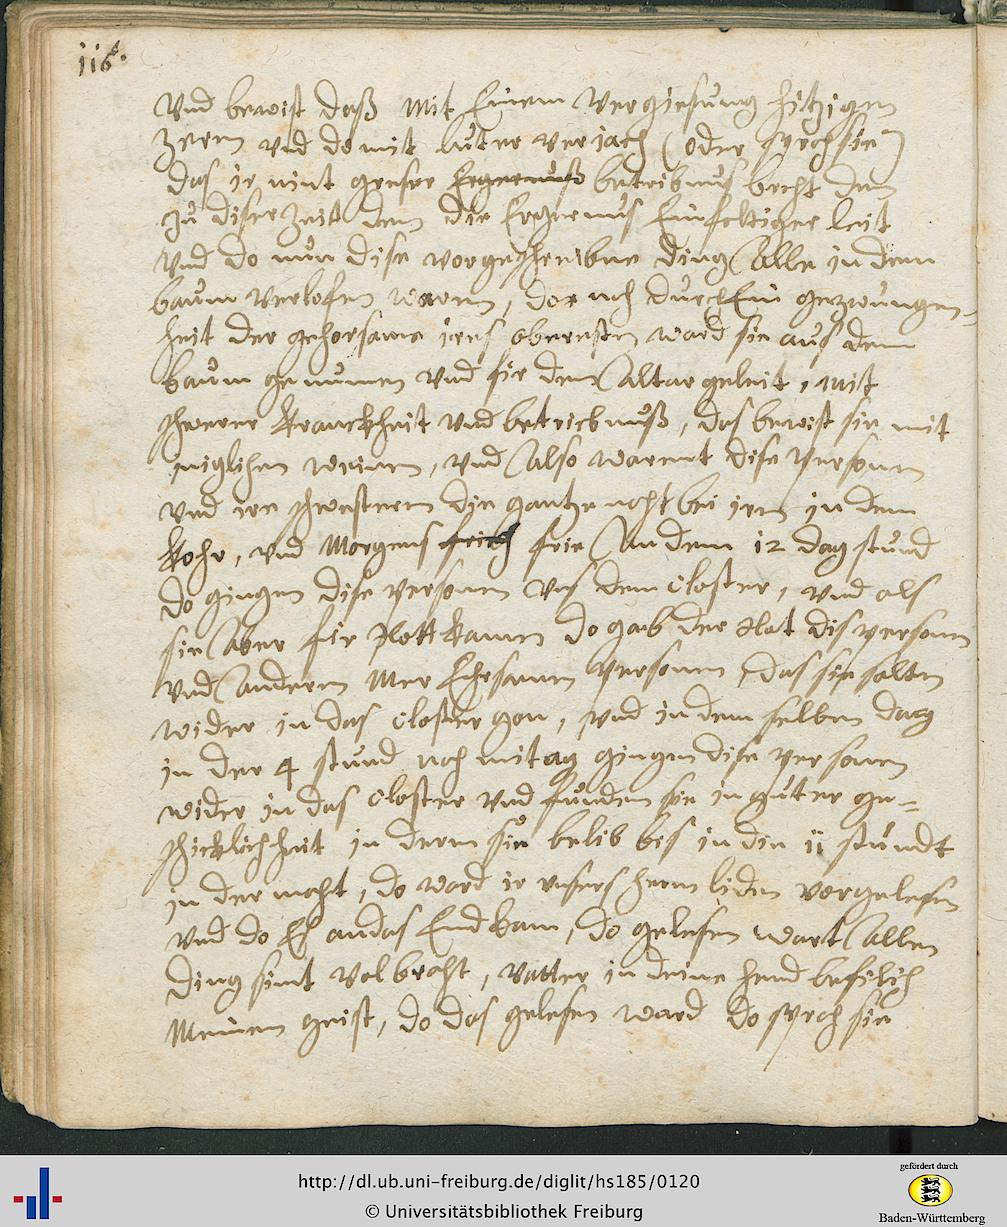 116.
Vnd bewist daß mit Einem Vergiesung hitzigen
Zeren vnd do mit luter verjach (oder sprach sie)
das ir nint greser Ergernuß betribnus brcht dan
zu diser Zeit den die Ergernus Einfeltiger leit
Vnd do nun dise vorgeschreibne ding alle in dem
baum verlofen waren, dor noh durch Ein gezwungen=
heit der gehorsame ires obersten ward sie aus dem
baum genumen vnd fir den altar geleit, mit
schwerer kranckheit vnd betriebnuß, das bewist sie mit
miglihen weinen, vnd also warent dise personen
vnd ire schwestern die gantze noht bei iren in dem
kohr, vnd Morgens frie an dem 12 dag stund
do gingen dise personen vs dem closter, vnd als
sie aber fir kamen do gab der Rat dis personen
vnd anderen Mer Ehrsamen personen das sie solten
wider in das closter gon, vnd in dem selben dag
in der 4 stund noh mitag gingen dise personen
wider in das closter vnd funden sie in guter ge=
schicklichheit in deren sie belib bis in die ii stundt
in der noht, do ward ir vnsers heren liden vorgelesen
vnd do Es an das End kam, do gelesen wart allen
ding sint volbroht, vatter in deine hend befilich
Meinen geist, do das gelesen ward do sprach sie
http://dl.ub.uni-freiburg.de/diglit/hs185/0120
© Universitätsbibliothek Freiburg
gefördert durch
Baden-Württemberg